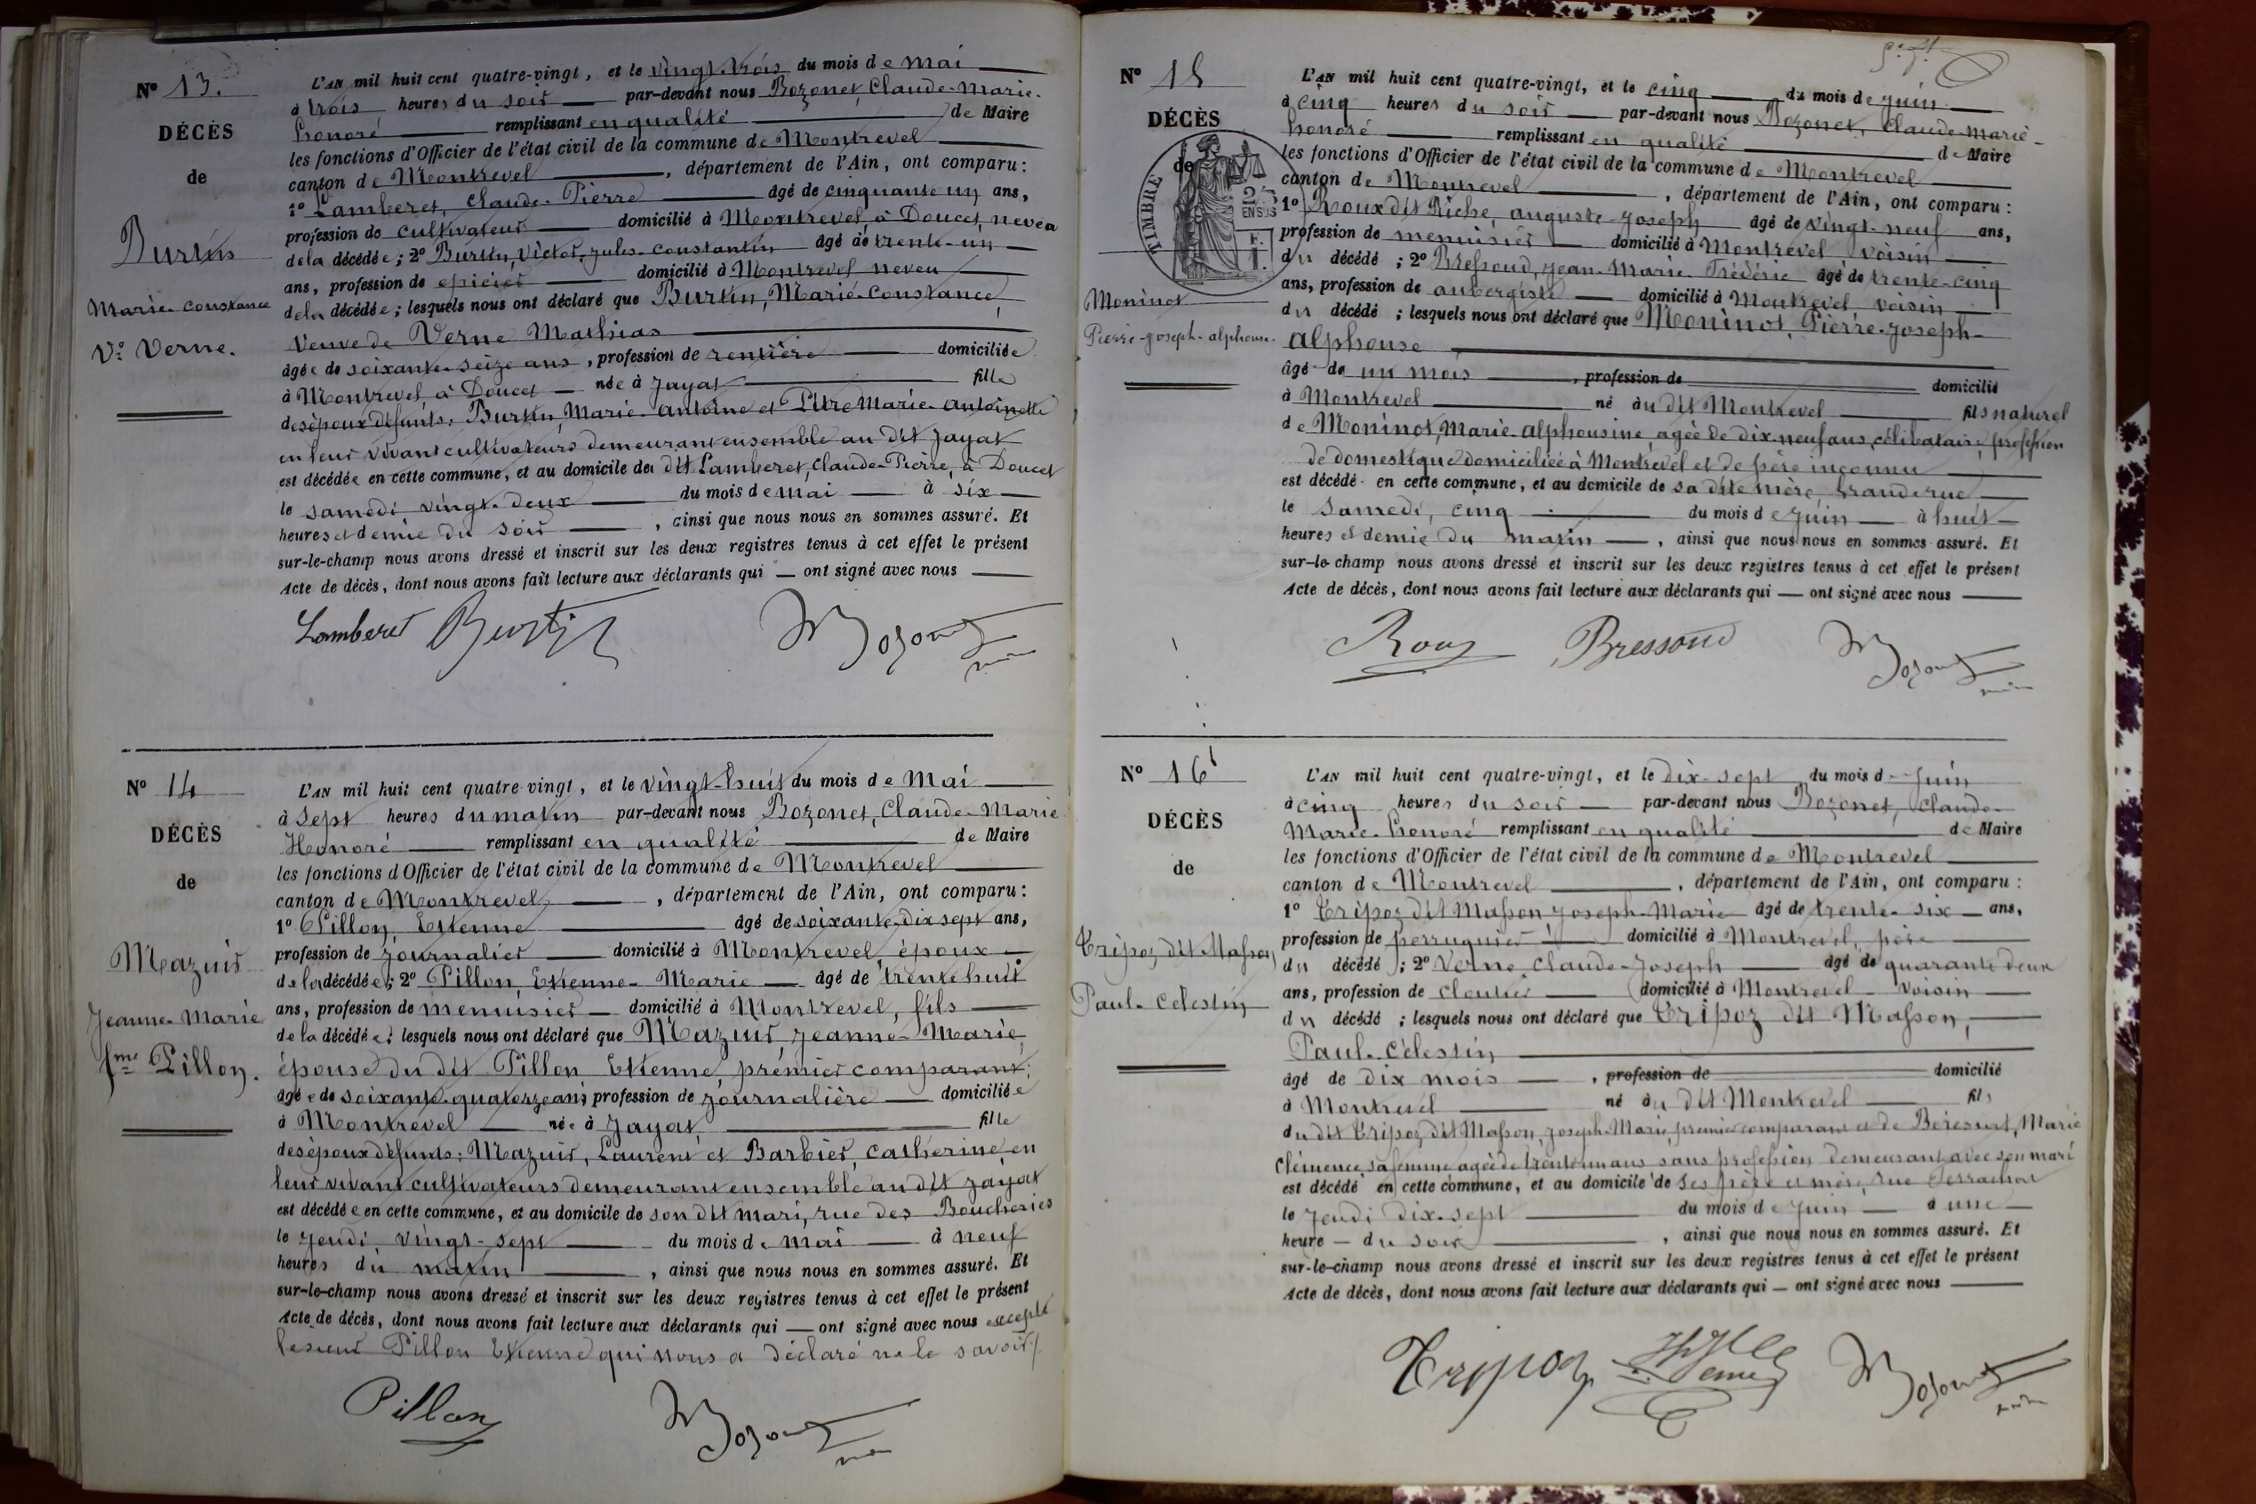 N° 13.
DÉCÈS
de
Burtin
Marie-Constance
Ve Verne.
L'AN mil huit cent quatre-vingt, et le vingt-trois du mois de Mai
à trois heures du soir par-devant nous Bozonet, Claude-Marie-
honoré remplissant en qualité de Maire
les fonctions d'Officier de l'état civil de la commune de Montrevel
canton de Montrevel, département de l'Ain, ont comparu :
1° Lamberet, Claude-Pierre âgé de cinquante un ans,
profession de cultivateur domicilié à Montrevel à Doucet neveu
de la décédée ; 2° Burtin, Victor-Jules-Constantin âgé de trente-un
ans, profession de épicier domicilié à Montrevel neveu
de la décédée ; lesquels nous ont déclaré que Burtin, Marie-Constance,
Veuve de Verne Mathias
âgée de soixante-seize ans, profession de rentière domiciliée
à Montrevel, à Doucet née à Jayat fille
des époux défunts : Burtin, Marie-Antoine et Marie-Antoinette
en leur vivant cultivateurs demeurant ensemble au dit Jayat
est décédée en cette commune, et au domicile du dit Lamberet, Claude-Pierre, à Doucet
le samedi vingt-deux du mois de Mai à six
heures et demie du soir, ainsi que nous nous en sommes assuré. Et
sur-le-champ nous avons dressé et inscrit sur les deux registres tenus à cet effet le présent
Acte de décès, dont nous avons fait lecture aux déclarants qui — ont signé avec nous
Lamberet Burtin Bozonet
N° 14
DÉCÈS
de
Mazuir
Jeanne-Marie
fme Pillon.
L'AN mil huit cent quatre-vingt, et le vingt-huit du mois de Mai
à sept heures du matin par-devant nous Bozonet, Claude-Marie
Honoré remplissant en qualité de Maire
les fonctions d'Officier de l'état civil de la commune de Montrevel
canton de Montrevel, département de l'Ain, ont comparu :
1° Pillon, Etienne âgé de soixante-dix sept ans,
profession de journalier domicilié à Montrevel, époux
de la décédée ; 2° Pillon, Etienne-Marie âgé de trente huit
ans, profession de menuisier domicilié à Montrevel, fils
de la décédée ; lesquels nous ont déclaré que Mazuir Jeanne-Marie,
épouse du dit Pillon Etienne, premier comparant,
âgée de soixante-quatorze ans, profession de journalière domiciliée
à Montrevel née à Jayat fille
des époux défunts : Mazuir, Laurent et Barbier, Catherine, en
leur vivant cultivateurs demeurant ensemble au dit Jayat
est décédée en cette commune, et au domicile de son dit mari, rue des Boucheries
le jeudi vingt-sept du mois de Mai à neuf
heures du matin, ainsi que nous nous en sommes assuré. Et
sur-le-champ nous avons dressé et inscrit sur les deux registres tenus à cet effet le présent
Acte de décès, dont nous avons fait lecture aux déclarants qui — ont signé avec nous excepté
le sieur Pillon Etienne qui nous a déclaré ne le savoir.
Pillon Bozonet
N° 15
DÉCÈS
de
TIMBRE
Moninot
Pierre-Joseph-alphonse.
L'AN mil huit cent quatre-vingt, et le cinq du mois de Juin
à cinq heures du soir par-devant nous Bozonet, Claude-Marie-
honoré remplissant en qualité de Maire
les fonctions d'Officier de l'état civil de la commune de Montrevel
canton de Montrevel, département de l'Ain, ont comparu :
1° Roux dit Riche, auguste-Joseph âgé de vingt-neuf ans,
profession de menuisier domicilié à Montrevel voisin
du décédé ; 2° Bressoud, Jean-Marie-Frédéric âgé de trente-cinq
ans, profession de aubergiste domicilié à Montrevel voisin
du décédé ; lesquels nous ont déclaré que Moninot, Pierre-Joseph-
alphonse
âgé de un mois, profession de domicilié
à Montrevel né au dit Montrevel fils naturel
de Moninot, Marie-alphonsine, agée de dix-neuf ans, célibataire, profession
de domestique domiciliée à Montrevel et de père inconnu
est décédé en cette commune, et au domicile de sa dite mère, Grande rue
le Samedi, cinq du mois de Juin à huit
heures et demie du matin, ainsi que nous nous en sommes assuré. Et
sur-le-champ nous avons dressé et inscrit sur les deux registres tenus à cet effet le présent
Acte de décès, dont nous avons fait lecture aux déclarants qui — ont signé avec nous
Roux Bressoud Bozonet
N° 16
DÉCÈS
de
Tripoz dit Masson
Paul-Celestin
L'AN mil huit cent quatre-vingt, et le dix-sept du mois de Juin
à cinq heures du soir par-devant nous Bozonet, Claude-
Marie-honoré remplissant en qualité de Maire
les fonctions d'Officier de l'état civil de la commune de Montrevel
canton de Montrevel, département de l'Ain, ont comparu :
1° Tripoz dit Masson Joseph-Marie âgé de trente-six ans,
profession de perruquier domicilié à Montrevel, père
du décédé ; 2° Verne, Claude-Joseph âgé de quarante deux
ans, profession de cloutier domicilié à Montrevel voisin
du décédé ; lesquels nous ont déclaré que Tripoz dit Masson,
Paul-Célestin
âgé de dix mois, profession de domicilié
à Montrevel né au dit Montrevel fils
du dit Tripoz dit Masson, Joseph-Marie, premier comparant et de Marie
Clémence sa femme agée de trente un ans sans profession demeurant avec son mari
est décédé en cette commune, et au domicile de ses père et mère, rue
le jeudi dix-sept du mois de Juin à une
heure du soir, ainsi que nous nous en sommes assuré. Et
sur-le-champ nous avons dressé et inscrit sur les deux registres tenus à cet effet le présent
Acte de décès, dont nous avons fait lecture aux déclarants qui — ont signé avec nous
Tripoz Verne Bozonet